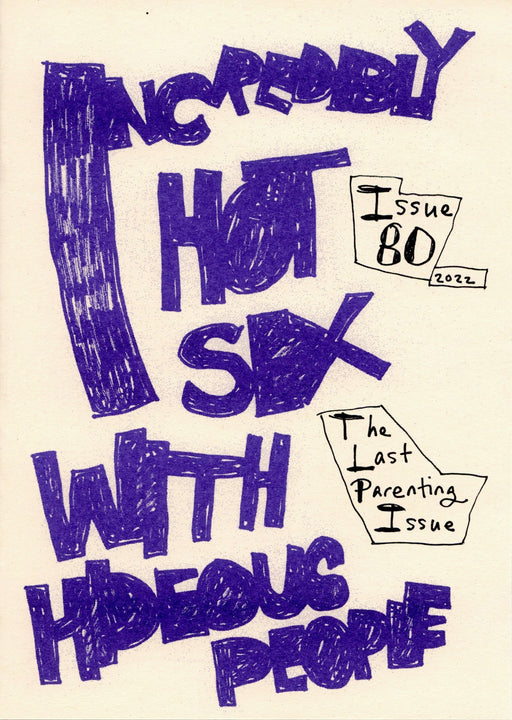 INCREDIBLY
HOT
SEX
WITH
HIDEOUS
PEOPLE
Issue
80
2022
The
Last
Parenting
Issue